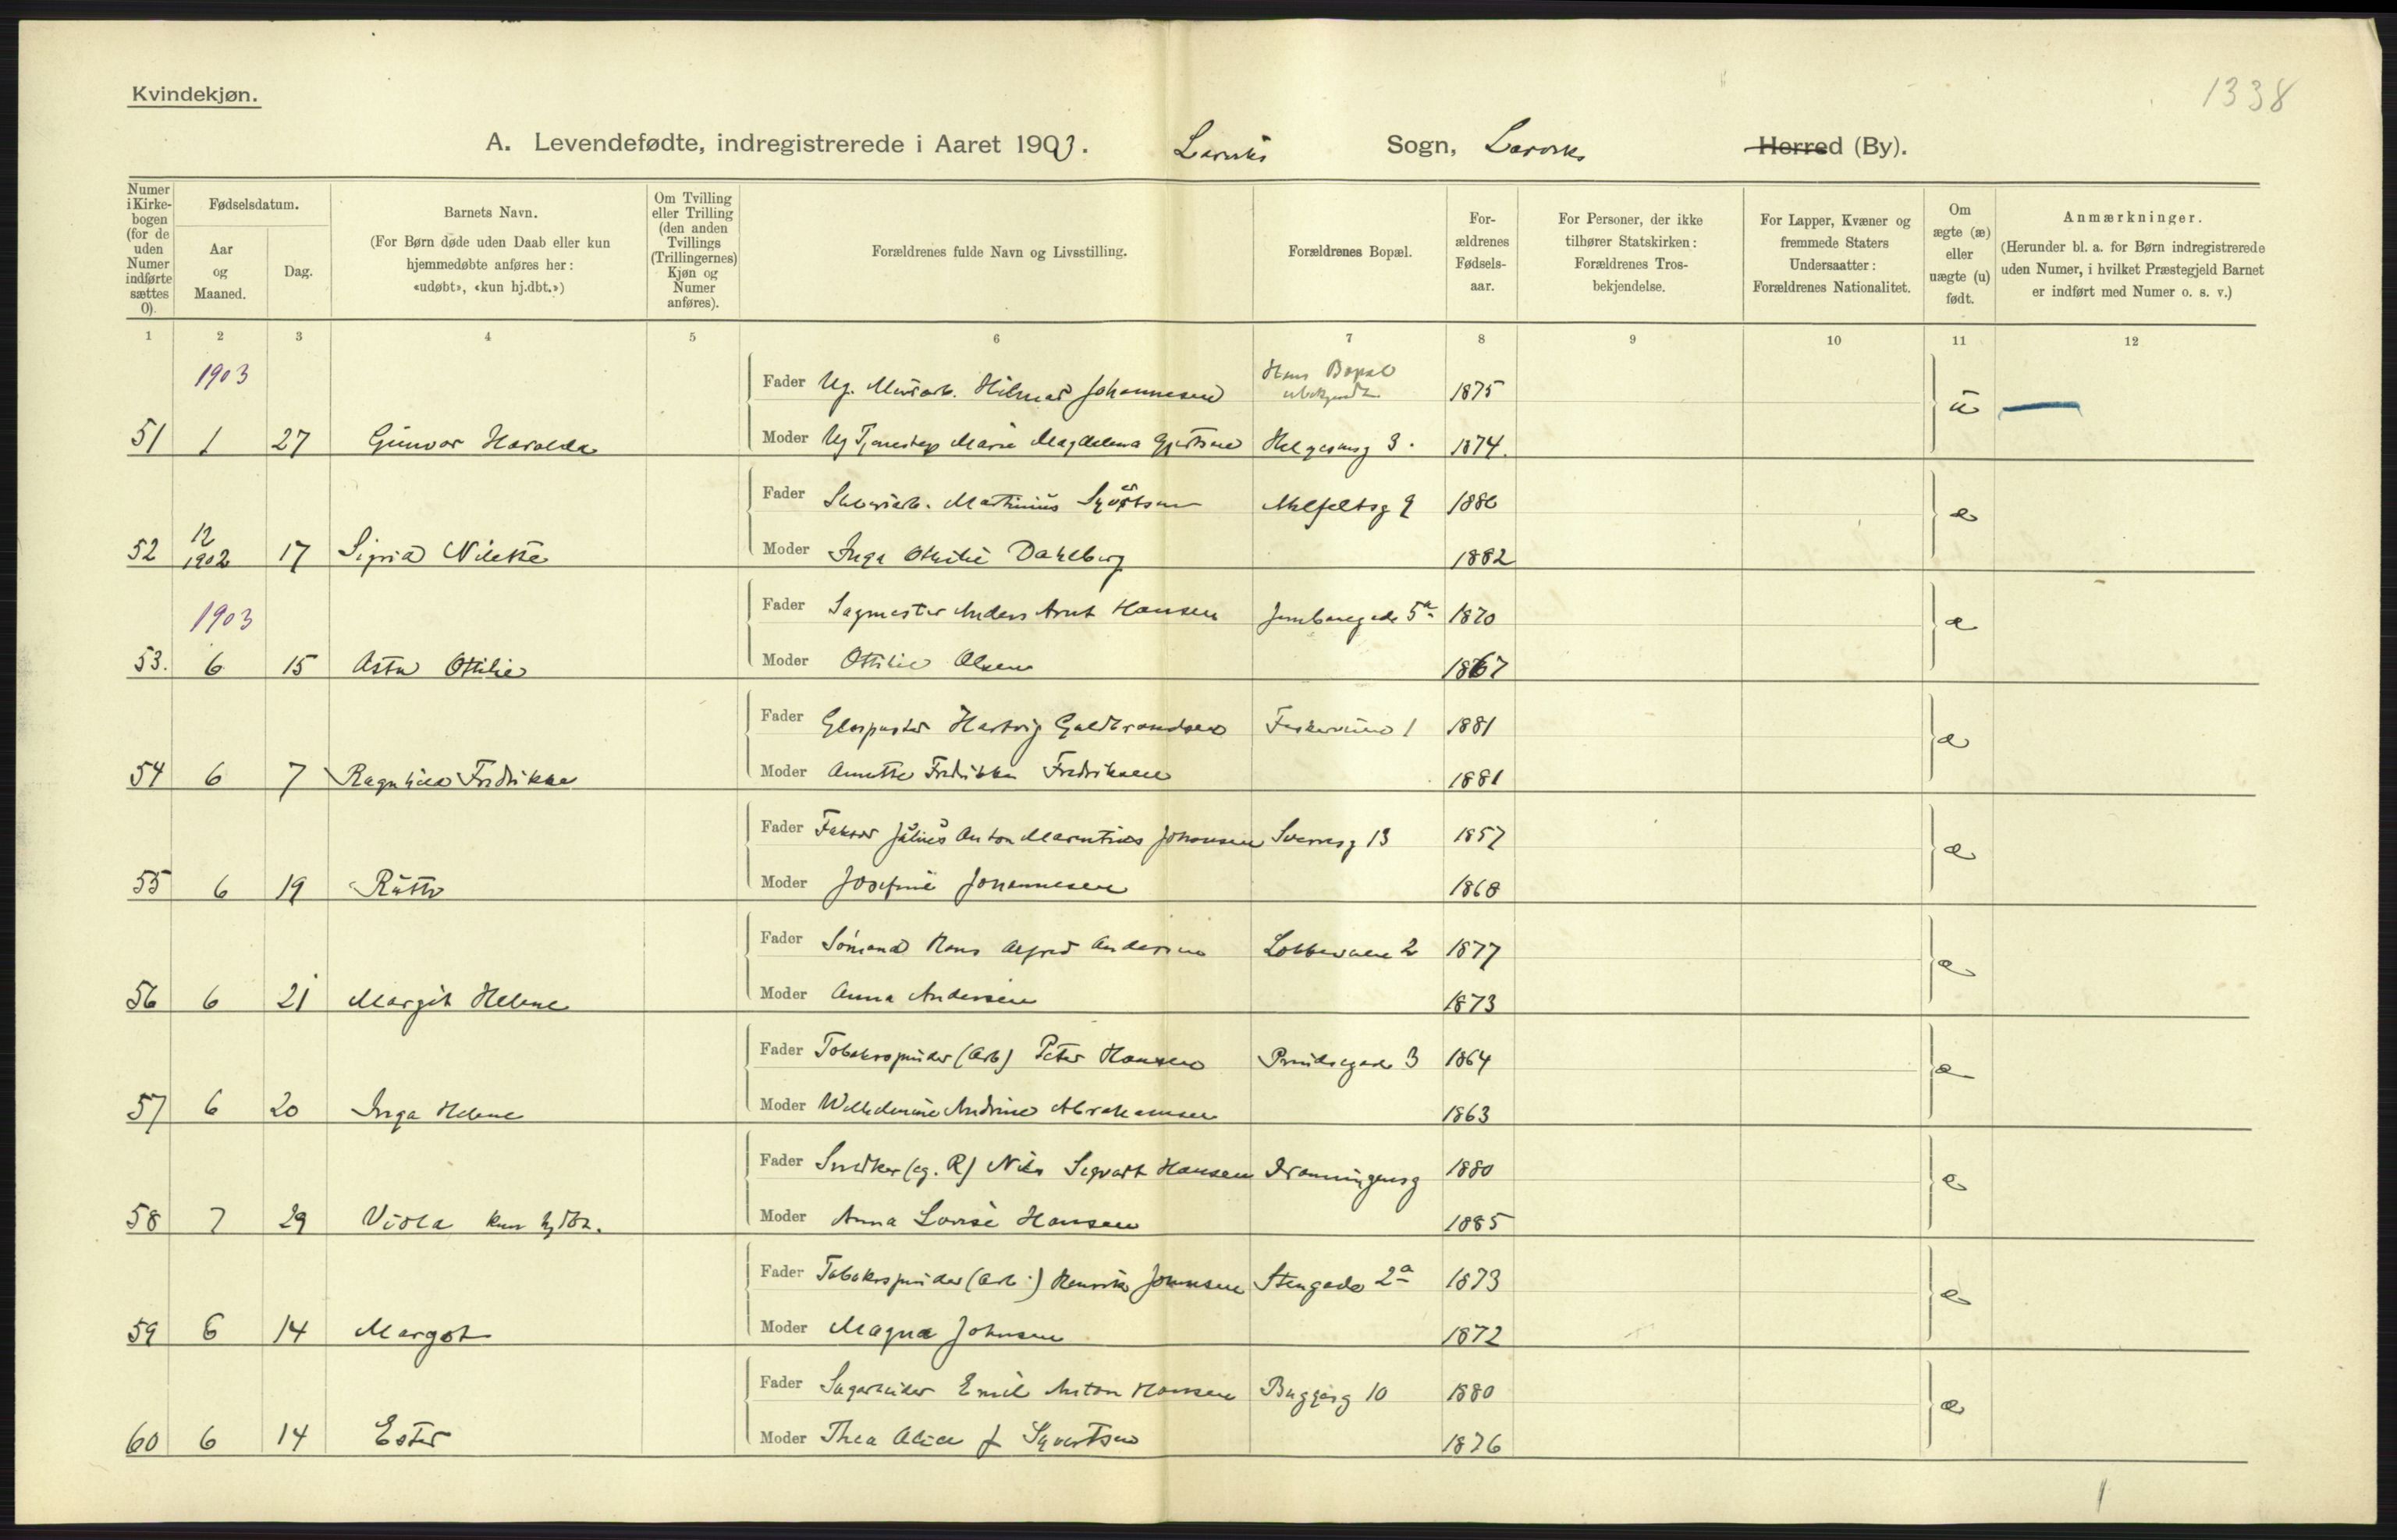 1338
Kvindekjøn.
A. Levendefødte, indregistrerede i Aaret 1903. Larviks Sogn, Larviks Herred (By).
Numer i Kirkebogen (for de uden Numer indførte sættes 0).
Fødselsdatum.
Aar og Maaned.
Dag.
Barnets Navn.
(For Børn døde uden Daab eller kun hjemmedøbte anføres her: «udøbt», «kun hj.dbt.»)
Om Tvilling eller Trilling (den anden Tvillings (Trillingernes) Kjøn og Numer anføres).
Forældrenes fulde Navn og Livsstilling.
Forældrenes Bopæl.
Forældrenes Fødselsaar.
For Personer, der ikke tilhører Statskirken: Forældrenes Trosbekjendelse.
For Lapper, Kvæner og fremmede Staters Undersaatter: Forældrenes Nationalitet.
Om ægte (æ) eller uægte (u) født.
Anmærkninger.
(Herunder bl. a. for Børn indregistrerede uden Numer, i hvilket Præstegjeld Barnet er indført med Numer o. s. v.)
1 2 3 4 5 6 7 8 9 10 11 12
1903 Fader Ug. Murarb. Hilmar Johannesen Hans Bopæl ubekjendt 1875 u
51 1 27 Gunvor Haralda Moder Ug Marie Magdelena Gjertsen 3. 1874.
Fader Martinius Syvertsen 9 æ
52 12 1902 17 Sigrid Nilette Moder Inga Othilie Dahlberg 1882
1903 Fader Sagmester Anders Arnt Hansen Jernbanegade 5a 1870 æ
53. 6 15 Asta Otilie Moder Ottilie Olsen 1867
Fader Glaspuster Hartvig Guldbrandsen 1 1881 æ
54 6 7 Ragnhild Fredrikke Moder Annette Fredrikke Fredriksen 1881
Fader Faktor Julius Anton Johansen Sverresg 13 1857 æ
55 6 19 Ruth Moder Josefine Johannesen 1868
Fader Sømand Hans Alfred Andersen 2 1877 æ
56 6 21 Margit Helene Moder Anna Andersen 1873
Fader Tobakspinder (Arb) Peter Hansen Prindsegade 3 1864 æ
57 6 20 Inga Helene Moder Wilhelmine Andrine Abrahamsen 1863
Fader Snedker (eg. R) Nils Sigvart Hansen Dronningensg 1880 æ
58 7 29 Viola kun hjdbt. Moder Anna Lovise Hansen 1885
Fader Tobakspinder (Arb.) Henrik Johnsen Stengade 2a 1873 æ
59 6 14 Margot Moder Magna Johnsen 1872
Fader Sagarbeider Emil Anton Hansen 10 1880 æ
60 6 14 Ester Moder Thea Alice f Syvertsen 1876